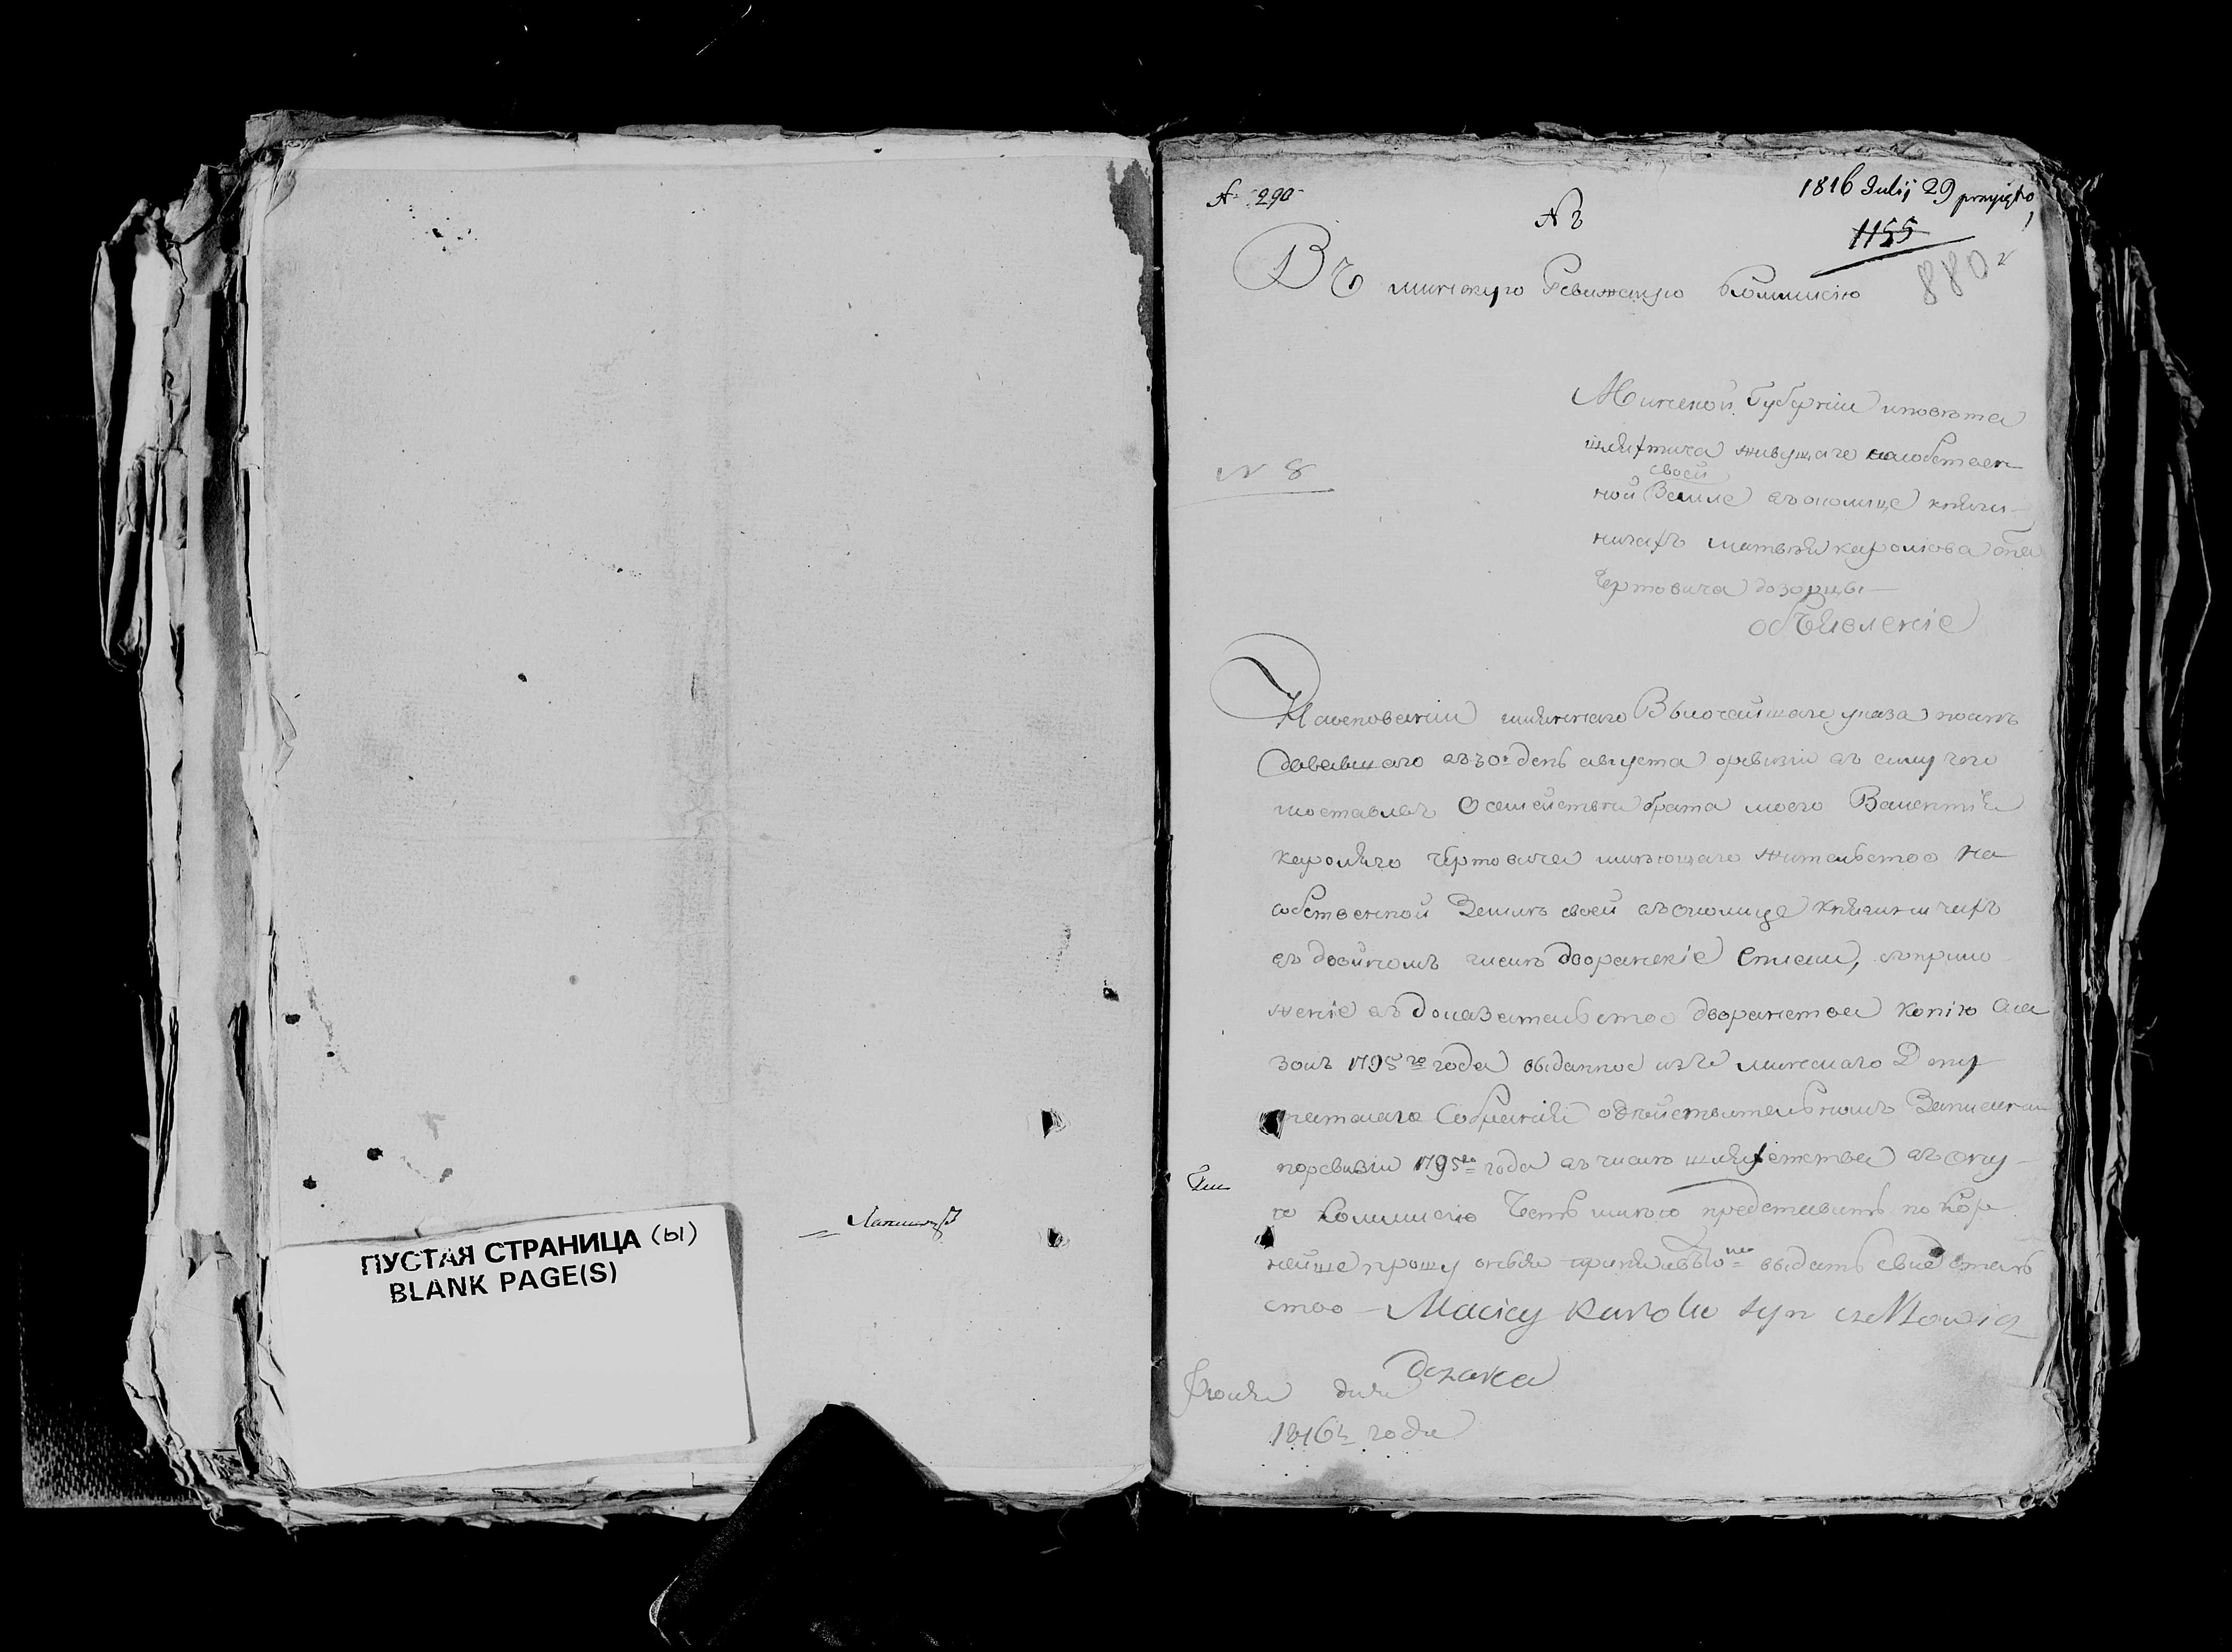 ПУСТАЯ СТРАНИЦА (Ы)
BLANK PAGE(S)
№ 290
№
1816 Julij 29 przyięto
1155
880
Въ минскую Ревижскую Коммисію
Минской Губерніи и повѣта
шляхтича живущаго на собствен
своей
ной Земле въ околице княги-
ничахъ матвѣя каролюва сына
Чертовича дозорцы
объявленіе
№ 8
На основаніи имяннаго Высочайшаго указа после
довавшаго въ 30 день августа о ревизіи въ силу чего
поставлъ О семействи брата моего Валентія
каролюго Чертовича имѣющаго жительство на
собственной Земли своей въ околице княгиничахъ
въ двойномъ числѣ дворанскіе Списки, съ прило
женіе въ доказательство дворанства копію Ска
зокъ 1795го года выданное изъ минскаго Депу
татскаго Собранія о действительномъ Записани
по ревизіи 1795го года въ числѣ шляхетства въ ону
ю Коммисію Честь имѣю представить покор
нейше прошу оные принявъ выдать свидѣтель
ство Maciey Karolu syn czertowicz
дозорца
Іюля дня
1816 года